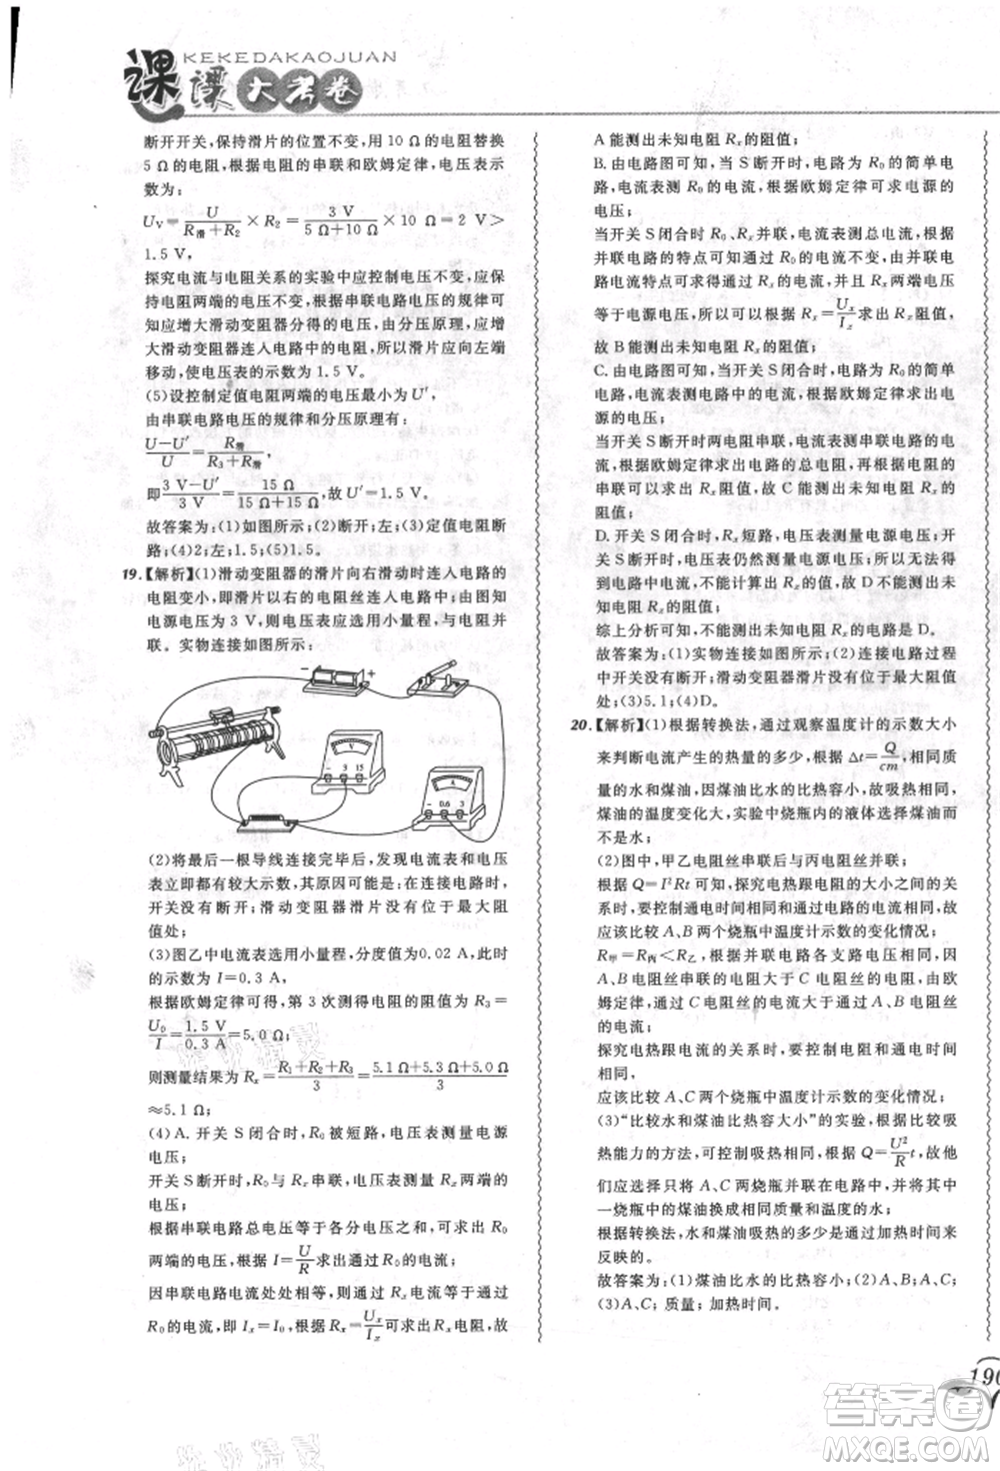 KEKEDAKAOJUAN
课课大考卷
断开开关，保持滑片的位置不变，用 10 Ω 的电阻替换
5 Ω 的电阻，根据电阻的串联和欧姆定律，电压表示
数为：
U_V = U/(R_滑+R_2) × R_2 = 3 V/(5 Ω+10 Ω) × 10 Ω = 2 V >
1.5 V，
探究电流与电阻关系的实验中应控制电压不变，应保
持电阻两端的电压不变，根据串联电路电压的规律可
知应增大滑动变阻器分得的电压，由分压原理，应增
大滑动变阻器连入电路中的电阻，所以滑片应向左端
移动，使电压表的示数为 1.5 V。
(5)设控制定值电阻两端的电压最小为 U′，
由串联电路电压的规律和分压原理有：
(U-U′)/U = R_滑/(R_3+R_滑)，
即(3 V-U′)/3 V = 15 Ω/(15 Ω+15 Ω)，故 U′=1.5 V。
故答案为：(1)如图所示；(2)断开；左；(3)定值电阻断
路；(4)2；左；1.5；(5)1.5。
19.【解析】(1)滑动变阻器的滑片向右滑动时连入电路的
电阻变小，即滑片以右的电阻丝连入电路中；又已知
电源电压为 3 V，则电压表应选用小量程，与电阻
并联。实物连接如图所示：
- +
V
- 3 15
A
- 0.6 3
(2)将最后一根导线连接完毕后，发现电流表和电压
表立即都有较大示数，其原因可能是：在连接电路时，
开关没有断开；滑动变阻器滑片没有位于最大
阻值处；
(3)图乙中电流表选用小量程，分度值为 0.02 A，此时
的示数为 I=0.3 A；
根据欧姆定律可得，第 3 次测得电阻的阻值 R_3=
U_0/I = 1.5 V/0.3 A = 5.0 Ω；
则测量结果为 R_x = (R_1+R_2+R_3)/3 = (5.1 Ω+5.2 Ω+5.0 Ω)/3
≈5.1 Ω；
(4)A. 开关 S 闭合时，R_0 被短路，电压表测量电源
电压；
开关 S 断开时，R_0 与 R_x 串联，电压表测量 R_x 两端的
电压；
根据串联电路总电压等于各电压之和，可求出 R_0
两端的电压，根据 I=U/R 求出通过 R_0 的电流；
因串联电路电流处处相等，所以通过 R_x 电流等于通过
R_0 的电流，即 I_x=I_0，根据 R_x=U_x/I_x 可求出 R_x 电阻，故
A 能测出未知电阻 R_x 的阻值；
B. 由电路图可知，当 S 断开时，电路为 R_0 的简单电
路，电流表测 R_0 的电流，根据欧姆定律可求出电源的
电压；
当开关 S 闭合时 R_0、R_x 并联，电流表测总电流，根据
并联电路的特点可知通过 R_x 的电流，并根据并联电
路电流特点可以求出通过 R_x 的电流，R_x 两端电压
等于电源电压，所以可以根据 R_x=U_x/I_x 求出阻值，
故 B 能测出未知电阻 R_x 的阻值；
C. 由电路图可知，当 S 闭合时，电路为 R_0 的简单
电路，电流表测电路中的电流，根据欧姆定律求出电
源的电压；
当开关 S 断开时两电阻串联，电流表测串联电路的电
流，根据欧姆定律求出电路的总电阻，再根据电阻的
串联求出 R_x 的阻值，故 C 能测出未知电阻 R_x 的
阻值；
D. 开关 S 闭合时，R_x 短路，电压表测量电源电压；
开关 S 断开时，电压表仍然测量电源电压，无法得
到通过电路的电流以及 R_x 两端的电压，所以不能测
出未知电阻 R_x 的阻值；
综上分析可知，不能测出未知电阻 R_x 的电路是 D。
故答案为：(1)实物连接如图所示；(2)连接电路过程
中开关没有断开；滑动变阻器滑片没有位于最大阻值
处；(3)5.1；(4)D。
20.【解析】(1)根据转换法，通过观察温度计的示数大小
来判断电流产生的热量的多少，根据 Δt=Q/cm，质
量的水和煤油，因煤油比水的比热容小，故吸热相同，
煤油的温度变化大，实验烧瓶中的液体应选择煤油而
不是水；
(2)图中，甲乙电阻丝串联后与丙电阻丝并联；
根据 Q=I²Rt 可知，探究电热跟电阻的大小的关系，
要控制通电时间相同和通过电路的电流时间相同，
应该比较 A、B 两个烧瓶中温度计示数的变化情况；
R_甲=R_丙<R_乙，根据并联电路各支路电压相同，可知
A、B 电阻丝串联的电阻大于 C 电阻丝的电阻，由欧
姆定律，通过 A 电阻丝的电流小于通过 C 电阻丝
的电流；
探究电热跟电流的关系时，要控制电阻和通电时间
相同，
应该比较 A、C 两个烧瓶中温度计示数的变化情况；
(3)“比较水和煤油比热容大小”的实验，根据比较吸
热能力的方法，可控制吸热相同，根据 Q=U²/R t，他
们应选择只将 A、C 两烧瓶并联在电路中，将其中
一烧瓶中的煤油换成相同质量和温度的水；
根据转换法，水和煤油吸热的多少是通过加热时间来
反映的。
故答案为：(1)煤油比水的比热容小；(2)A、B；A、C；
(3)A、C；质量；加热时间。
190
答案圈
MXQE.COM